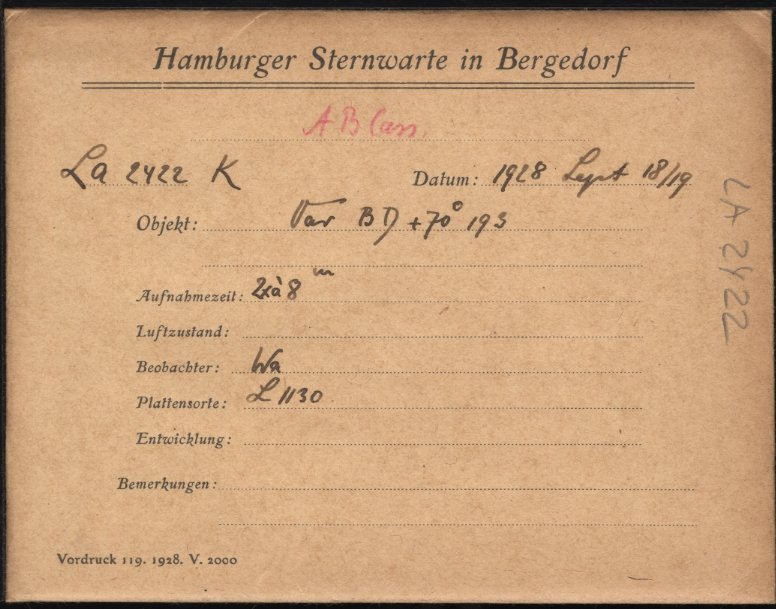 Hamburger Sternwarte in Bergedorf
AB Cass.
La 2422 K Datum: 1928 Sept 18/19
Objekt: Var BD +70° 193
Aufnahmezeit: 2xà8 m
Luftzustand:
Beobachter: Wa
Plattensorte: L 1130
Entwicklung:
Bemerkungen:
Vordruck 119. 1928. V. 2000
LA 2422